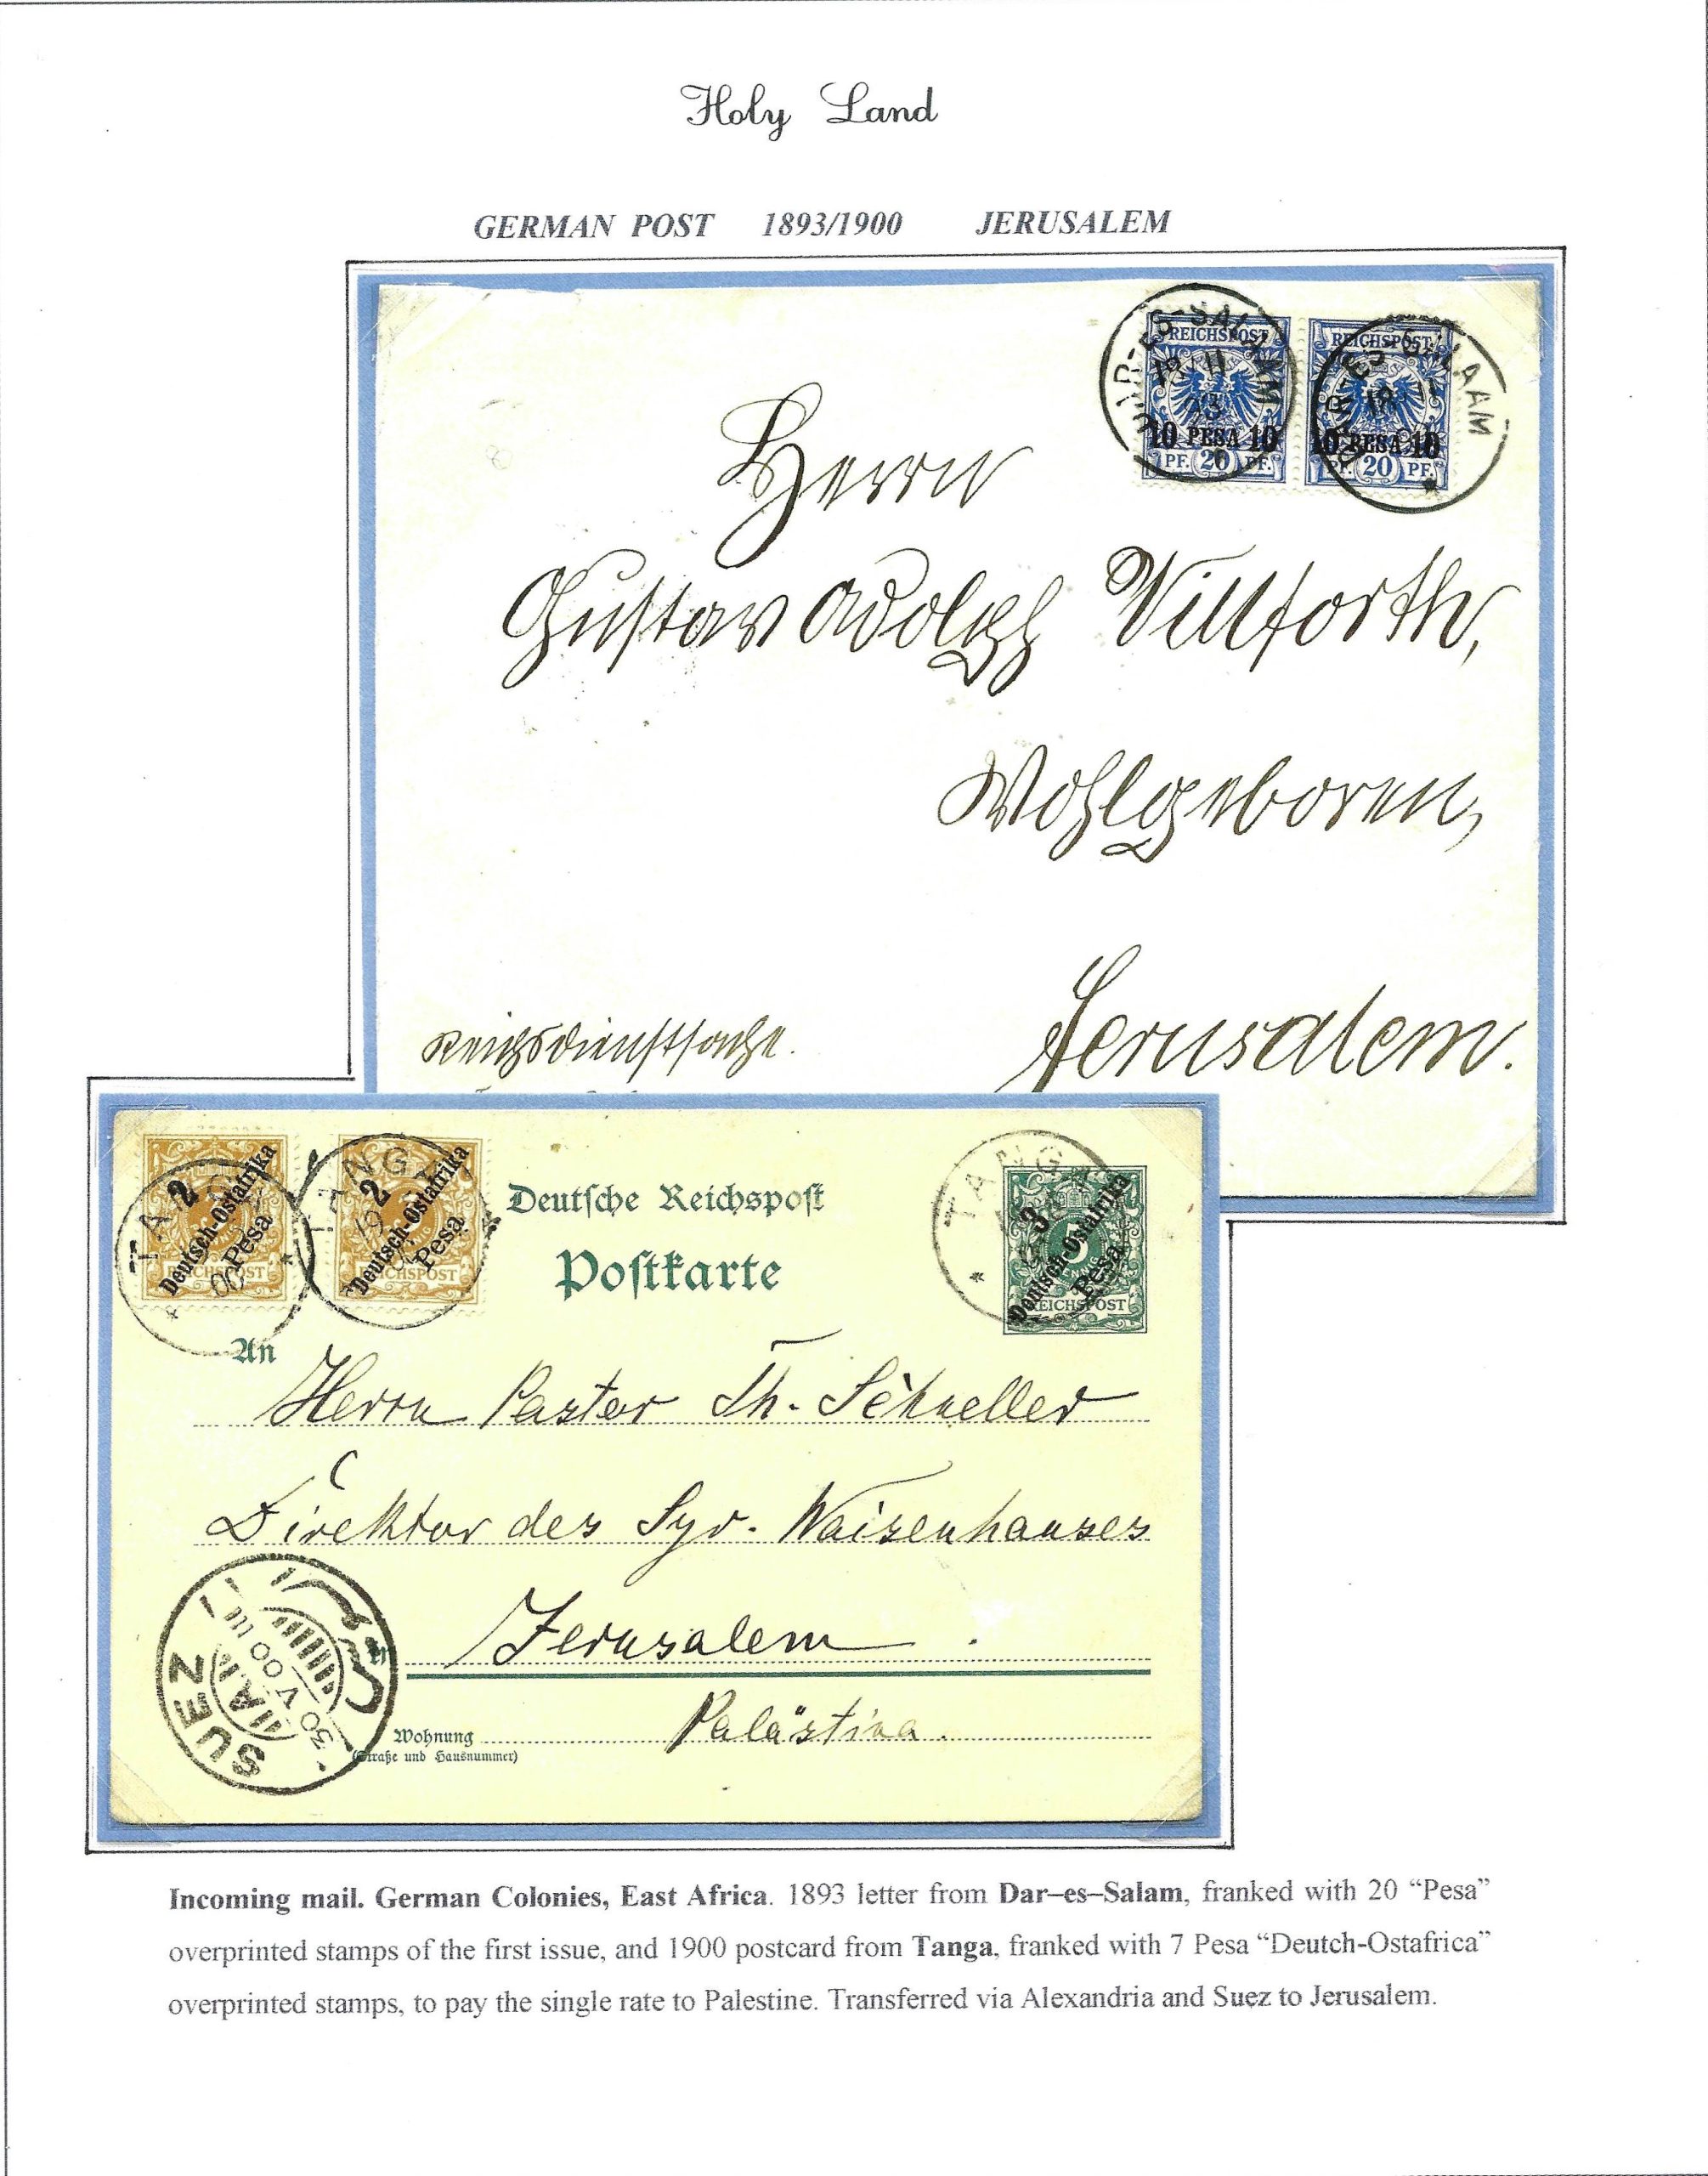 Holy Land
GERMAN POST 1893/1900 JERUSALEM
DAR-ES-SALAAM
REICHSPOST
10 PESA 10
PF. 20 PF.
DAR-ES-SALAAM
REICHSPOST
10 PESA 10
PF. 20 PF.
Herrn
Gustav Adolph Villforth,
Wohlgeboren,
Jerusalem.
Reichsdienstsache.
TANGA
2
Deutsch-Ostafrika
Pesa
REICHSPOST
TANGA
2
Deutsch-Ostafrika
Pesa
REICHSPOST
Deutsche Reichspost
Postkarte
TANGA
3
5
Deutsch-Ostafrika
Pesa
REICHSPOST
An
Herrn Pastor Th. Schneller
Direktor des Syr. Waisenhauses
in Jerusalem
SUEZ
30 V 00 III
Wohnung Palästina.
(Straße und Hausnummer)
Incoming mail. German Colonies, East Africa. 1893 letter from Dar–es–Salam, franked with 20 “Pesa”
overprinted stamps of the first issue, and 1900 postcard from Tanga, franked with 7 Pesa “Deutch-Ostafrica”
overprinted stamps, to pay the single rate to Palestine. Transferred via Alexandria and Suez to Jerusalem.